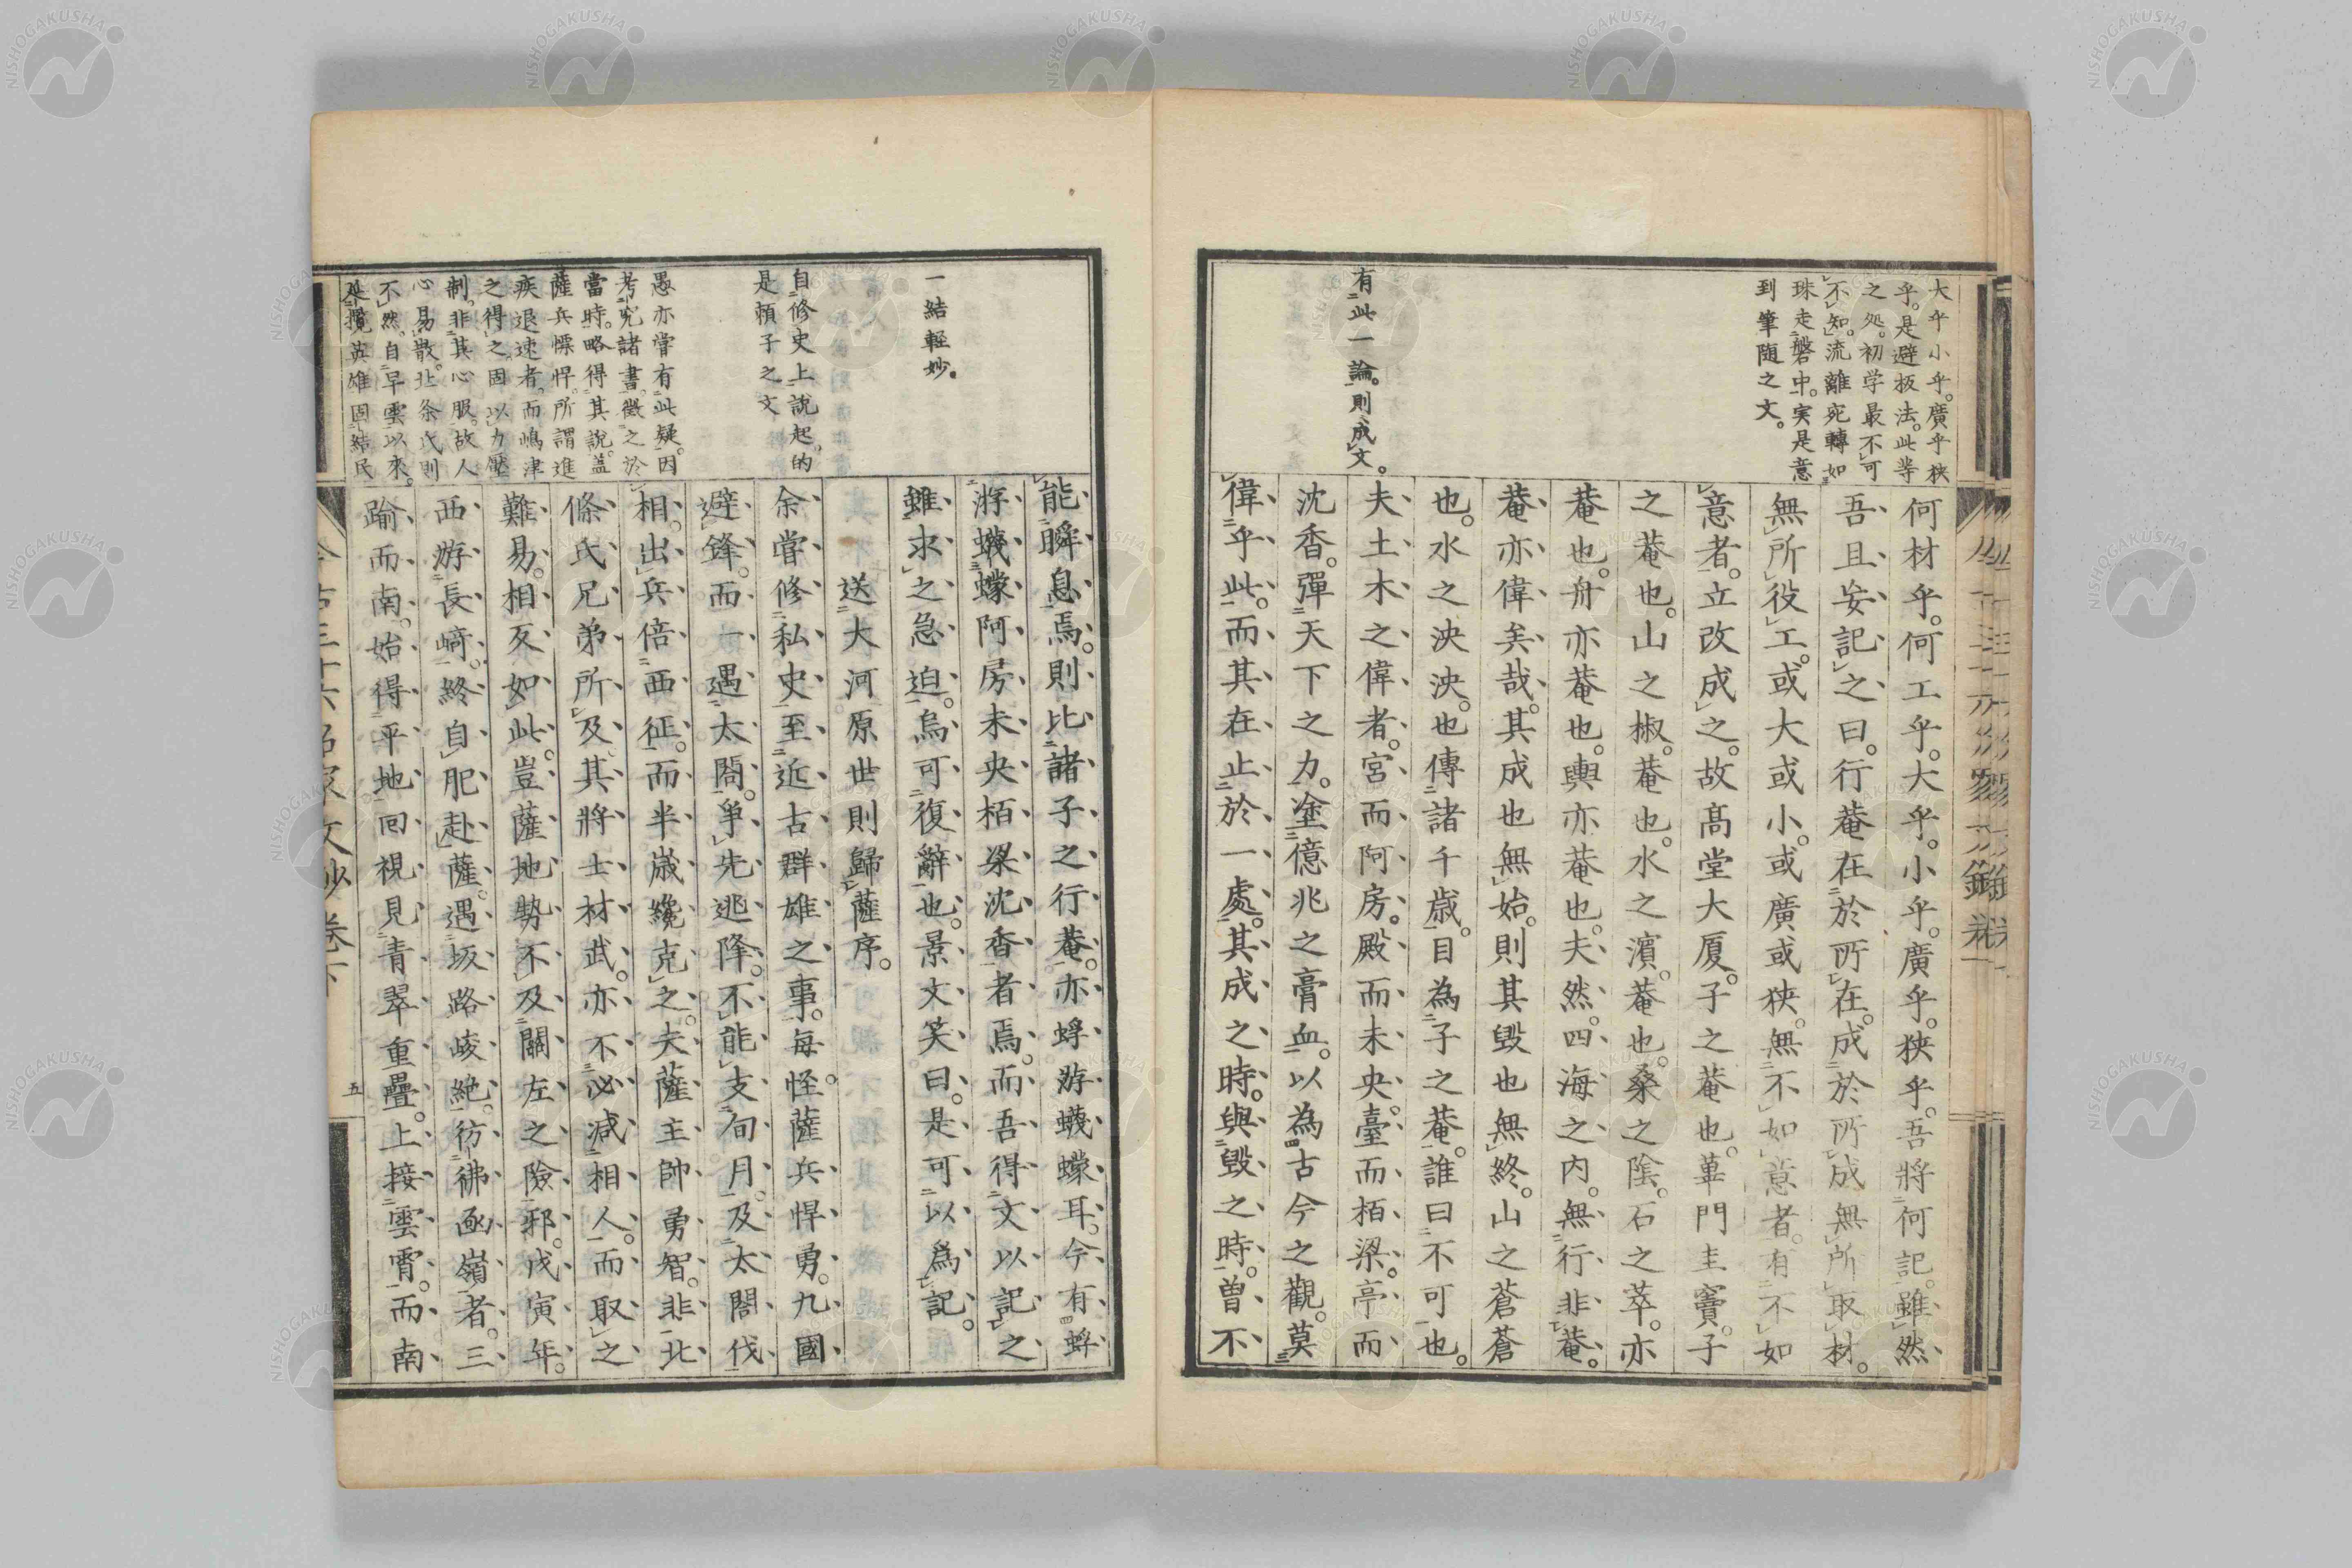 大乎小乎。廣乎狭
乎。是避板法。此等
之処。初学最不可
不知。流離宛轉如
珠走磐中。実是意
到筆随之文。
有此一論。則成文。
何材乎。何工乎。大乎。小乎。廣乎。狭乎。吾將何記。雖然
吾且安記之曰。行菴在於所在。成於所成無所取材。
無所役工。或大或小。或廣或狭。無不如意者。有不如
意者。立改成之。故髙堂大厦。子之菴也。蓽門圭竇。子
之菴也。山之椒。菴也。水之濱。菴也。桑之陰。石之萃。亦
菴也。舟亦菴也。輿亦菴也。夫然。四海之内。無行非菴。
菴亦偉矣哉。其成也無始。則其毀也無終。山之蒼蒼
也。水之泱泱。也傳諸千歳。目為子之菴。誰曰不可也。
夫土木之偉者。宮而阿房。殿而未央。臺而栢梁。亭而
沈香。彈天下之力。塗億兆之膏血。以為古今之觀。莫
偉乎此。而其在止於一處。其成之時。與毀之時。曽不
一結軽妙。
自修史上説起。的
是頼子之文
愚亦嘗有此疑。因
考究諸書。徴之於
當時。略得其説。蓋
薩兵慓悍。所謂進
疾退速者。而嶋津
之得之固以力壓
制。非其心服。故人
心易散。北条氏則
不然。自早雲以來。
延攬英雄固結民
能瞬息焉。則比諸子之行菴。亦蜉蝣蠛蠓耳。今有蜉
蝣蠛蠓阿房未央栢梁沈香者焉。而吾得文以記之
雖求之急迫。烏可復辭也。景文笑曰。是可以為記。
送大河原世則歸薩序。
余嘗修私史至近古群雄之事。毎怪薩兵悍勇。九國
避鋒。而一遇太閤。爭先逃降。不能支旬月。及太閤伐
相。出兵倍西征。而半歳纔克之。夫薩主帥勇智。非北
條氏兄弟所及。其將士材武。亦不必減相人。而取之
難易。相反如此。豈薩地勢不及關左之險邪。戊寅年。
西游長崎。終自肥赴薩。遇坂路峻絶。彷彿函嶺者。三
踰而南。始得平地。回視見青翠重疊。上接雲霄。而南
五